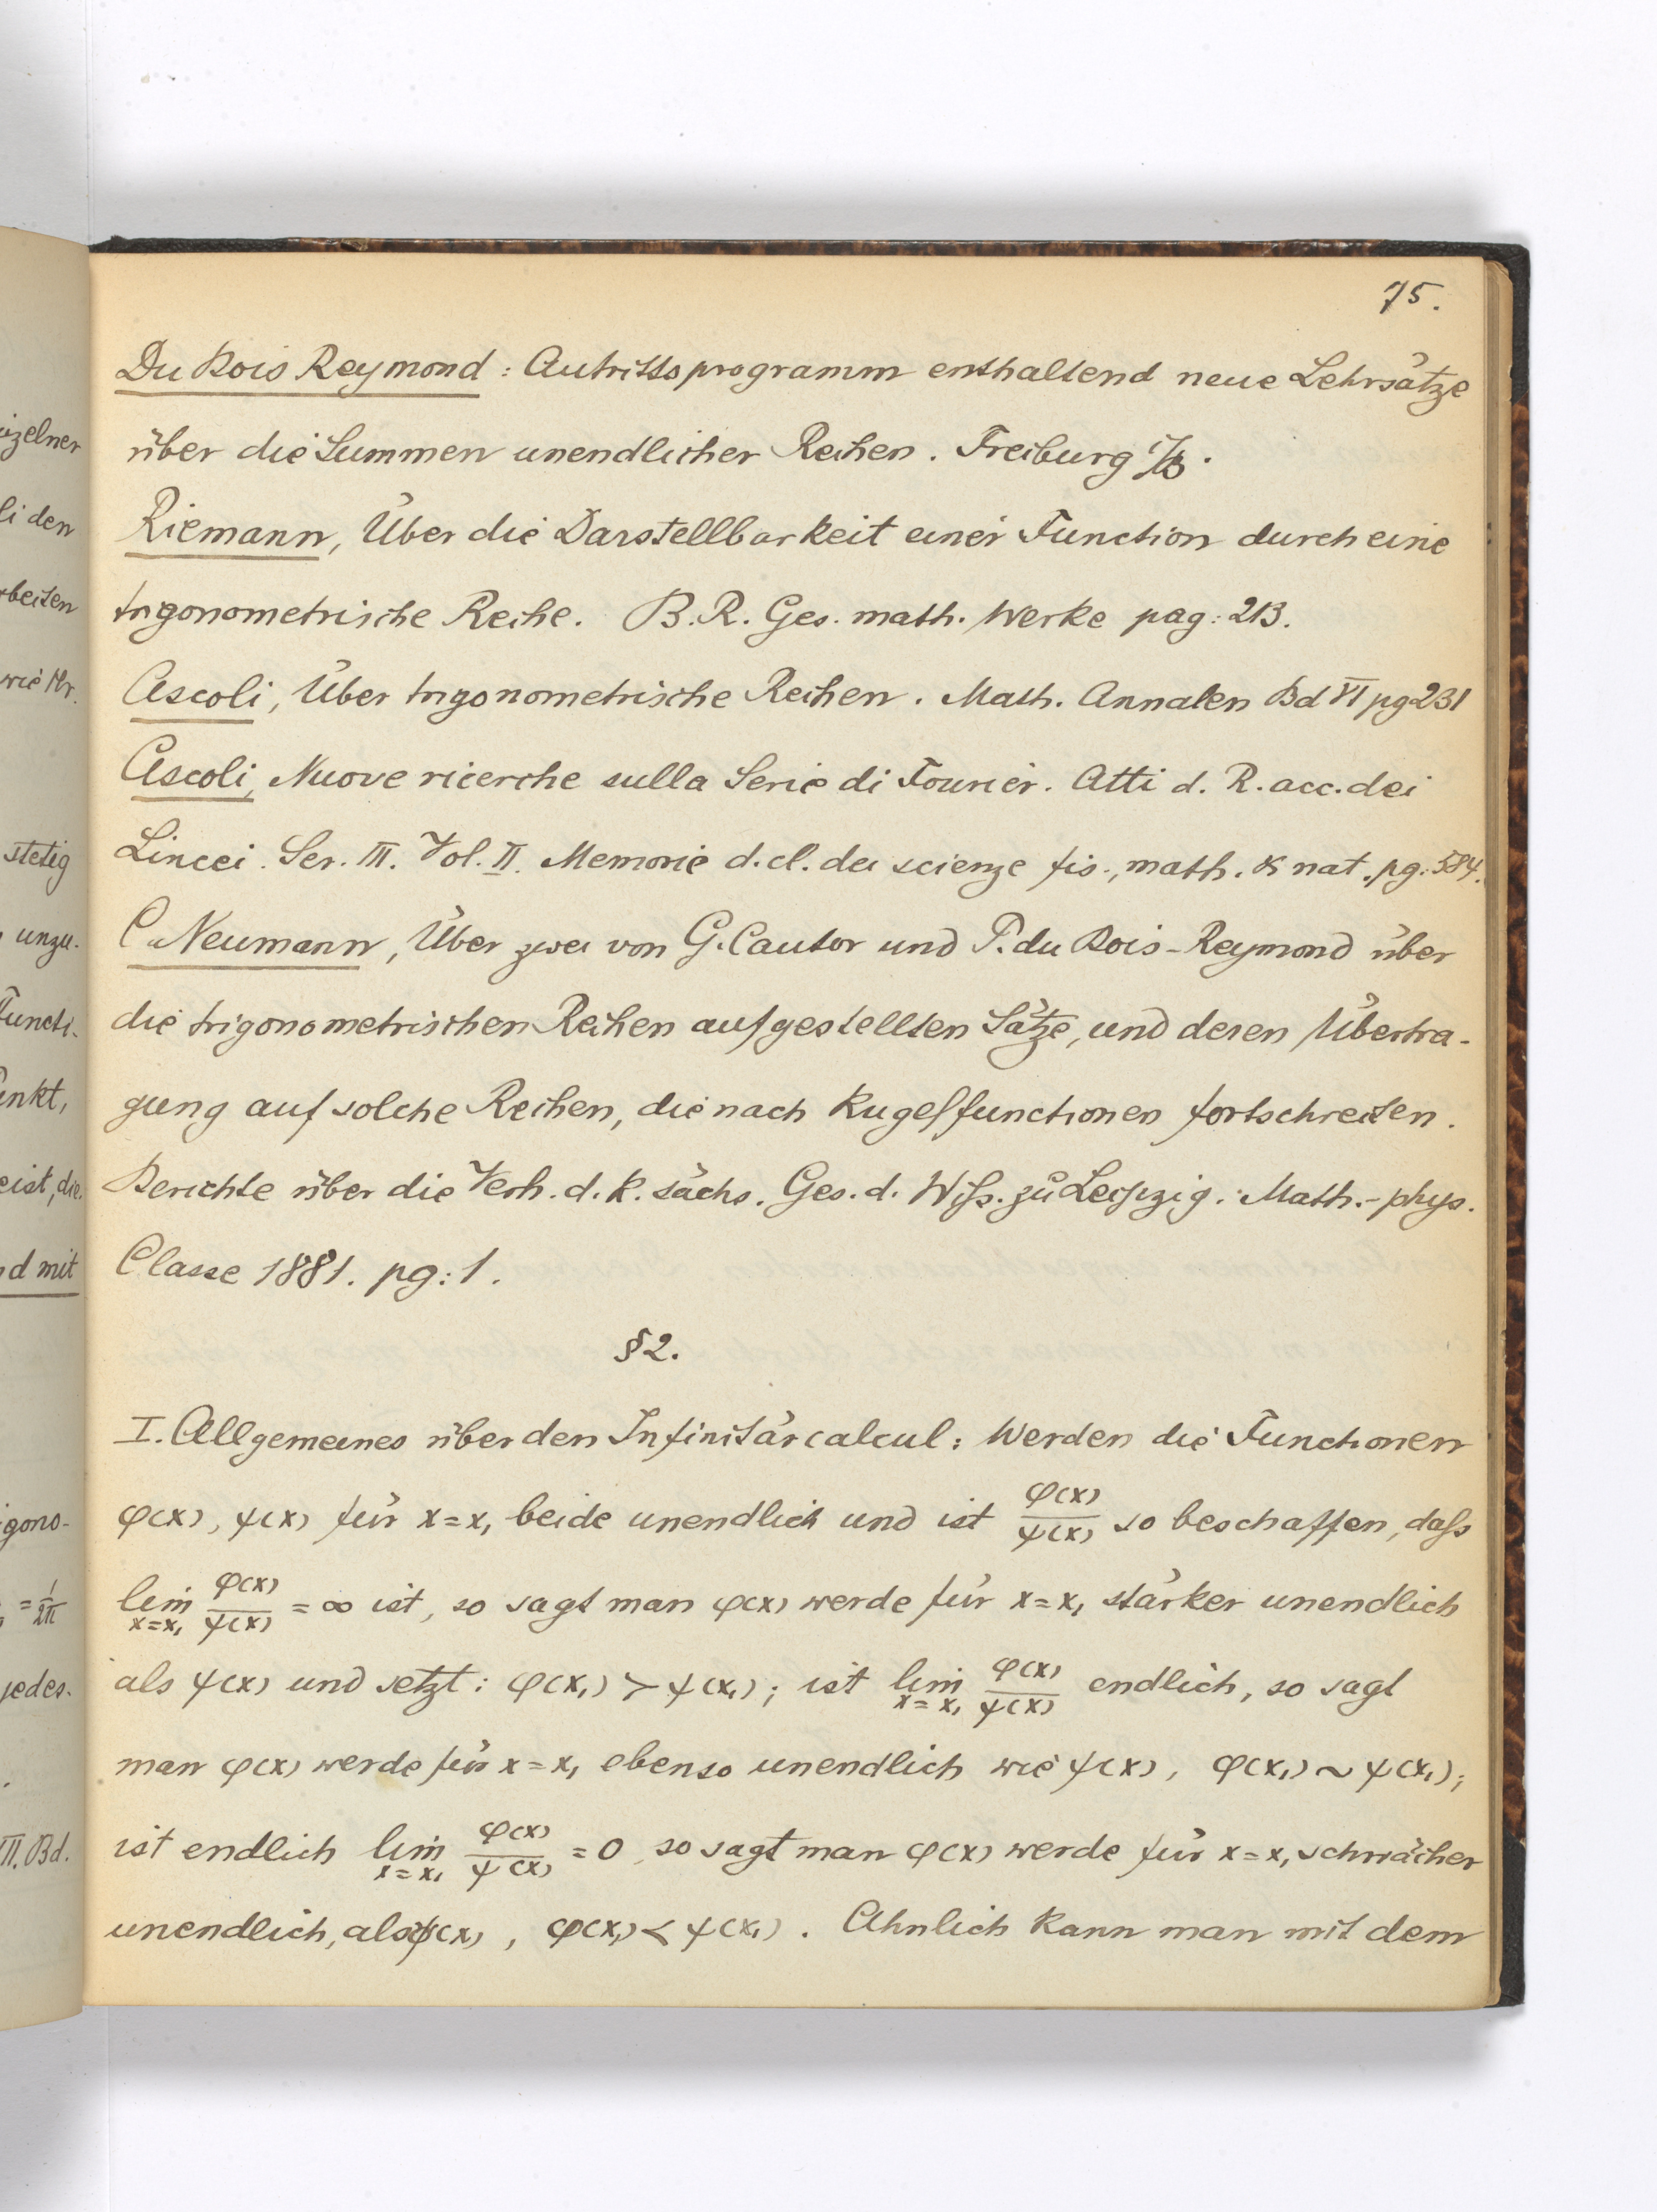 75.
Du Bois Reymond : Antrittsprogramm enthaltend neue Lehrsätze
über die Summen unendlicher Reihen. Freiburg i/B.
Riemann, Über die Darstellbarkeit einer Function durch eine
trigonometrische Reihe. B.R. Ges. math. Werke pag: 213.
Ascoli, Über trigonometrische Reihen. Math. Annalen Bd VI pg 231
Ascoli, Nuove ricerche sulla Serie di Fourier. Atti d. R. acc. dei
Lincei. Ser. III. Vol. II. Memorie d. cl. dei scienze fis., math. & nat. pg: 584.
C. Neumann, Über zwei von G. Cantor und P. du Bois-Reymond über
die trigonometrischen Reihen aufgestellten Sätze, und deren Übertra-
gung auf solche Reihen, die nach Kugelfunctionen fortschreiten.
Berichte über die Verh. d. k. sächs. Ges. d. Wiß. zu Leipzig. Math.-phys.
Classe 1881. pg: 1.
§2.
I. Allgemeines über den Infinitärcalcul: Werden die Functionen
φ(x), ψ(x) für x=x₁ beide unendlich und ist φ(x)/ψ(x) so beschaffen, daß
lim x=x₁ φ(x)/ψ(x) = ∞ ist, so sagt man φ(x) werde für x=x₁ stärker unendlich
als ψ(x) und setzt: φ(x₁) > ψ(x₁); ist lim x=x₁ φ(x)/ψ(x) endlich, so sagt
man φ(x) werde für x=x₁ ebenso unendlich wie ψ(x), φ(x₁) ~ ψ(x₁);
ist endlich lim x=x₁ φ(x)/ψ(x) = 0, so sagt man φ(x) werde für x=x₁ schwächer
unendlich, als ψ(x), φ(x₁) < ψ(x₁). Ähnlich kann man mit dem
izelner
li den
rbeiten
wie Hr.
stetig
unzu-
Functi-
nkt,
eist, die
d mit
igono-
= 1/2π
jedes-
III. Bd.